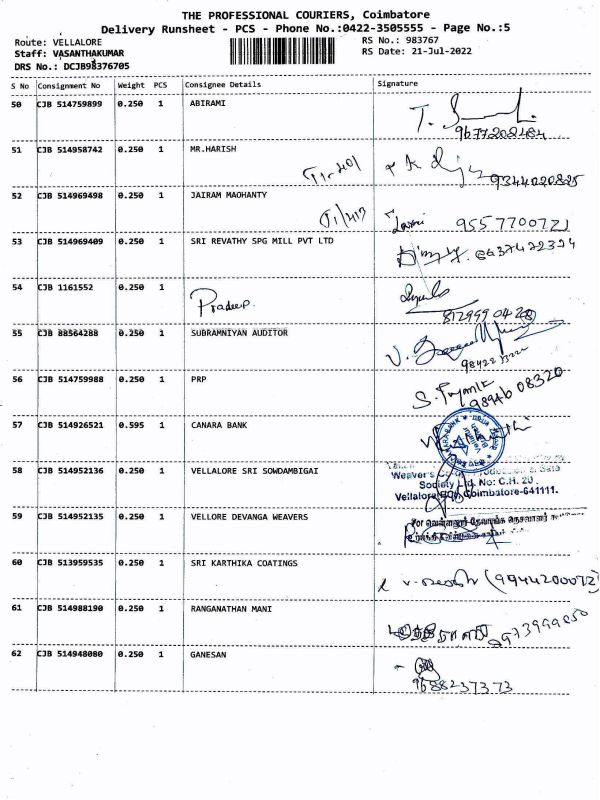 THE PROFESSIONAL COURIERS, Coimbatore
Delivery Runsheet - PCS - Phone No.:0422-3505555 - Page No.:5
Route: VELLALORE
RS No.: 983767
Staff: VASANTHAKUMAR
RS Date: 21-Jul-2022
DRS No.: DCJB98376705
S No Consignment No Weight PCS Consignee Details Signature
50 CJB 514759899 0.250 1 ABIRAMI
51 CJB 514958742 0.250 1 MR.HARISH
T1-401 9344020825
52 CJB 514969498 0.250 1 JAIRAM MAOHANTY
T1/413 9557700721
53 CJB 514969409 0.250 1 SRI REVATHY SPG MILL PVT LTD
54 CJB 1161552 0.250 1
Pradeep.
55 CJB 88564288 0.250 1 SUBRAMNIYAN AUDITOR
56 CJB 514759988 0.250 1 PRP
9894608320
57 CJB 514926521 0.595 1 CANARA BANK
58 CJB 514952136 0.250 1 VELLALORE SRI SOWDAMBIGAI
Weaver's & Sale
Society Ltd. No: C.H. 20
Vellalore Coimbatore-641111.
59 CJB 514952135 0.250 1 VELLORE DEVANGA WEAVERS
For வெள்ளலூர் தேவாங்க நெசவாளர்
60 CJB 513959535 0.250 1 SRI KARTHIKA COATINGS
(9944200072)
61 CJB 514988190 0.250 1 RANGANATHAN MANI
62 CJB 514948080 0.250 1 GANESAN
9688237373